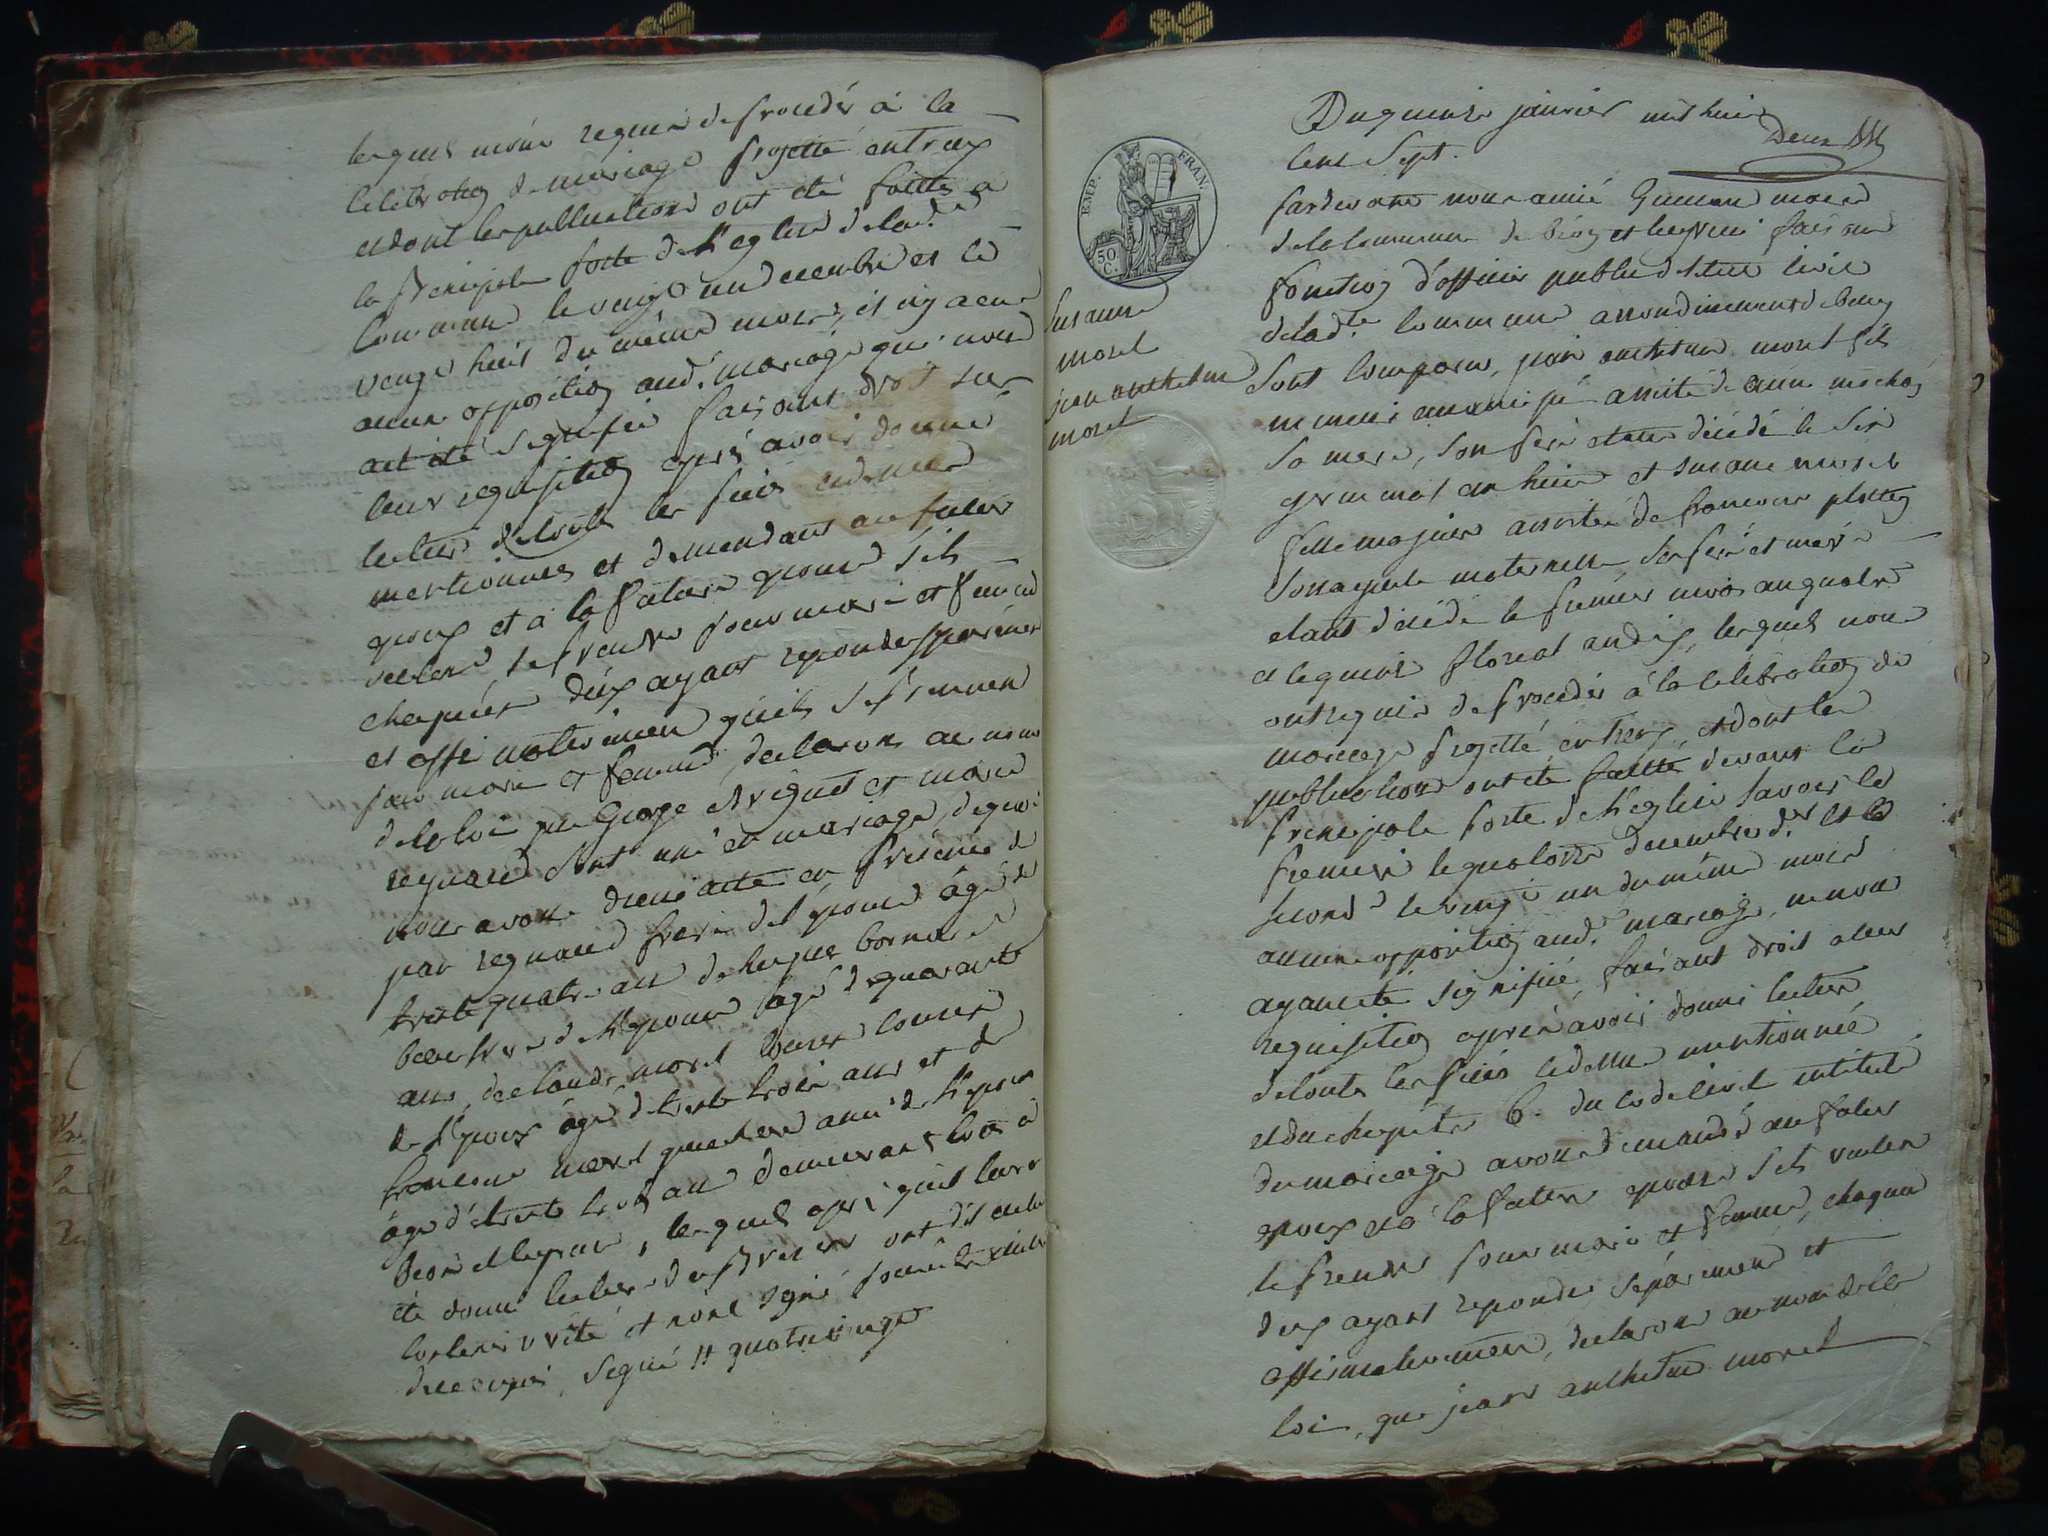 lesquels nous requis de procédér à la
célébration de mariage projetté entreux
et dont les publications ont été faittes a
la principale porte de l'eglise de la d.
Commune le vingt un decembre et le
vengt huit du même mois, et ny aeune
aucune opposition aud. mariage qui nous
ait été signifié faisant droit sur
leur requisition après avoir donné
lecture de toutes les pieces cidessus
mentionnés et demendant au futur
epoux et a la future epouse s'ils
veulent se prendre pour mari et femme
chaqu'un d'eux ayant repondu séparémen
et affirmativemen qu'ils se prennen
pour mari et femme, declarons au nom
de la loi que George et marie
reynaud sont uni en mariage, de quoi
nous avons dressé acte en présence de
par reynaud frere de l'epouse âgé de
trente quatre ans de bornare
beau frere de l'epouse âgé de quarante
ans, de claude morel cousin
de l'epoux âgé de trente trois ans et de
francois morel ami de l'epoux
âgé de trente trois ans demeurant tous à
Béon et luyrieu, lesquels après qu'il leur a
été donné lecture du present ont dit icelui
contenir vérité et n'ont signé pour
de ce enquis, signé 11 quatrevingt
EMP. FRAN.
50 C.
Susanne
morel
jean anthelme
morel
Du quinze janvier mil huit
cent sept.
Deux
pardevant nous aimé maire
de la Commune de béon et luyrieu faisant
fonction d'officier public de l'état civil
de la d.te Commune arrondissement de beley
Sont comparu, jean anthelme morel fils
mineur assisté de
Sa mere, son pere etant décédé le six
germinal an huit et susane morel
fille majeure assistée de francoise
son ayeule maternelle, son pere et mere
etant décédé le premier nivos an quatre
et le quinze floreal an dix, lesquels nous
ont requis de procédér à la célébration du
mariage projetté entreux, et dont les
publications ont été faittes devant la
principale porte de l'eglise savoir la
premiere le quatorze decembre d.r et la
seconde le vingt un du même mois
aucune opposition aud. mariage, ne nous
ayant été signifié, faisant droit a leur
requisition après avoir donné lecture
de toutes les pieces ci dessus mentionnée
et du chapitre 6. du code civil intitulé
du mariage avons demandé au futur
epoux et à la future epouse s'ils veulent
se prendre pour mari et femme, chaqun
d'eux ayant repondu séparémens et
affirmativement, declarons au nom de la
loi, que jean anthelme morel